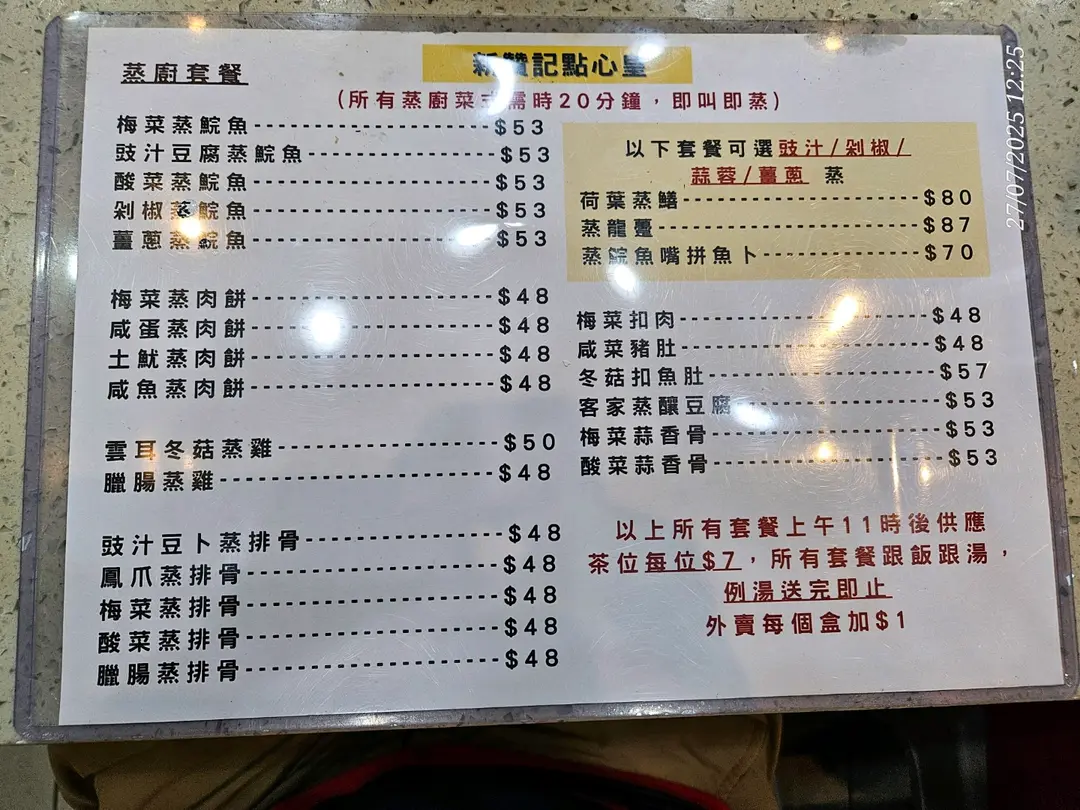 新讚記點心皇
蒸廚套餐
(所有蒸廚菜式需時20分鐘，即叫即蒸)
梅菜蒸鯇魚 $53
豉汁豆腐蒸鯇魚 $53
酸菜蒸鯇魚 $53
剁椒蒸鯇魚 $53
薑蔥蒸鯇魚 $53
梅菜蒸肉餅 $48
咸蛋蒸肉餅 $48
土魷蒸肉餅 $48
咸魚蒸肉餅 $48
雲耳冬菇蒸雞 $50
臘腸蒸雞 $48
豉汁豆卜蒸排骨 $48
鳳爪蒸排骨 $48
梅菜蒸排骨 $48
酸菜蒸排骨 $48
臘腸蒸排骨 $48
以下套餐可選豉汁/剁椒/
蒜蓉/薑蔥 蒸
荷葉蒸鱔 $80
蒸龍躉 $87
蒸鯇魚嘴拼魚卜 $70
梅菜扣肉 $48
咸菜豬肚 $48
冬菇扣魚肚 $57
客家蒸釀豆腐 $53
梅菜蒜香骨 $53
酸菜蒜香骨 $53
以上所有套餐上午11時後供應
茶位每位$7，所有套餐跟飯跟湯，
例湯送完即止
外賣每個盒加$1
27/07/2025 12:25